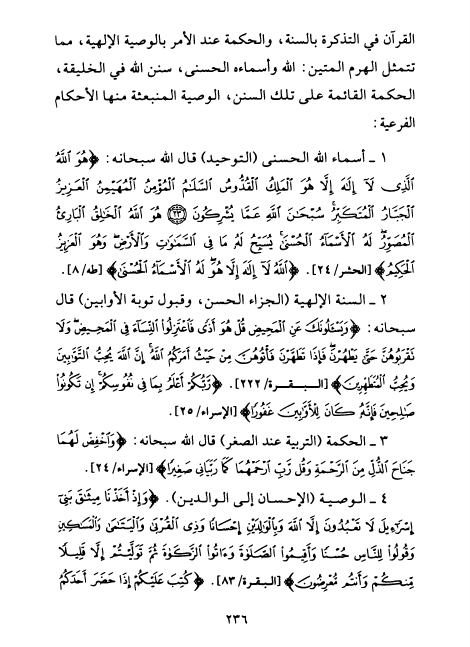 القرآن في التذكرة بالسنة، والحكمة عند الأمر بالوصية الإلهية، مما
تتمثل الهرم المتين: الله وأسماءه الحسنى، سنن الله في الخليقة،
الحكمة القائمة على تلك السنن، الوصية المنبعثة منها الأحكام
الفرعية:
١ ـ أسماء الله الحسنى (التوحيد) قال الله سبحانه: ﴿هُوَ ٱللَّهُ
ٱلَّذِى لَآ إِلَٰهَ إِلَّا هُوَ ٱلْمَلِكُ ٱلْقُدُّوسُ ٱلسَّلَٰمُ ٱلْمُؤْمِنُ ٱلْمُهَيْمِنُ ٱلْعَزِيزُ
ٱلْجَبَّارُ ٱلْمُتَكَبِّرُ سُبْحَٰنَ ٱللَّهِ عَمَّا يُشْرِكُونَ ﴿٢٣﴾ هُوَ ٱللَّهُ ٱلْخَٰلِقُ ٱلْبَارِئُ
ٱلْمُصَوِّرُ لَهُ ٱلْأَسْمَآءُ ٱلْحُسْنَىٰ يُسَبِّحُ لَهُۥ مَا فِى ٱلسَّمَٰوَٰتِ وَٱلْأَرْضِ وَهُوَ ٱلْعَزِيزُ
ٱلْحَكِيمُ﴾ [الحشر/٢٤]. ﴿ٱللَّهُ لَآ إِلَٰهَ إِلَّا هُوَ لَهُ ٱلْأَسْمَآءُ ٱلْحُسْنَىٰ﴾ [طه/٨].
٢ ـ السنة الإلهية (الجزاء الحسن، وقبول توبة الأوابين) قال
سبحانه: ﴿وَيَسْـَٔلُونَكَ عَنِ ٱلْمَحِيضِ قُلْ هُوَ أَذًى فَٱعْتَزِلُوا۟ ٱلنِّسَآءَ فِى ٱلْمَحِيضِ وَلَا
نَقْرَبُوهُنَّ حَتَّىٰ يَطْهُرْنَ فَإِذَا تَطَهَّرْنَ فَأْتُوهُنَّ مِنْ حَيْثُ أَمَرَكُمُ ٱللَّهُ إِنَّ ٱللَّهَ يُحِبُّ ٱلتَّوَّٰبِينَ
وَيُحِبُّ ٱلْمُتَطَهِّرِينَ﴾ [البقرة/٢٢٢]. ﴿رَّبُّكُمْ أَعْلَمُ بِمَا فِى نُفُوسِكُمْ إِن تَكُونُوا۟
صَٰلِحِينَ فَإِنَّهُۥ كَانَ لِلْأَوَّٰبِينَ غَفُورًا﴾ [الإسراء/٢٥].
٣ ـ الحكمة (التربية عند الصغر) قال الله سبحانه: ﴿وَٱخْفِضْ لَهُمَا
جَنَاحَ ٱلذُّلِّ مِنَ ٱلرَّحْمَةِ وَقُل رَّبِّ ٱرْحَمْهُمَا كَمَا رَبَّيَانِى صَغِيرًا﴾ [الإسراء/٢٤].
٤ ـ الوصية (الإحسان إلى الوالدين). ﴿وَإِذْ أَخَذْنَا مِيثَٰقَ بَنِىٓ
إِسْرَٰٓءِيلَ لَا تَعْبُدُونَ إِلَّا ٱللَّهَ وَبِٱلْوَٰلِدَيْنِ إِحْسَانًا وَذِى ٱلْقُرْبَىٰ وَٱلْيَتَٰمَىٰ وَٱلْمَسَٰكِينِ
وَقُولُوا۟ لِلنَّاسِ حُسْنًا وَأَقِيمُوا۟ ٱلصَّلَوٰةَ وَءَاتُوا۟ ٱلزَّكَوٰةَ ثُمَّ تَوَلَّيْتُمْ إِلَّا قَلِيلًا
مِّنكُمْ وَأَنتُم مُّعْرِضُونَ﴾ [البقرة/٨٣]. ﴿كُتِبَ عَلَيْكُمْ إِذَا حَضَرَ أَحَدَكُمُ
٢٣٦